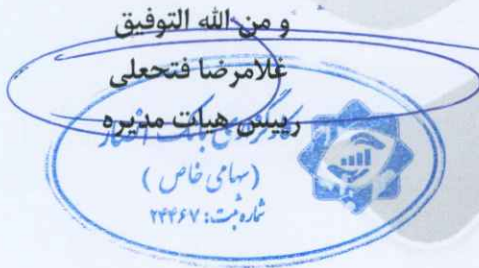 و من الله التوفیق
غلامرضا فتحعلی
رییس هیات مدیره
بانک انصار
(سهامی خاص)
شماره ثبت: ۲۴۴۶۷